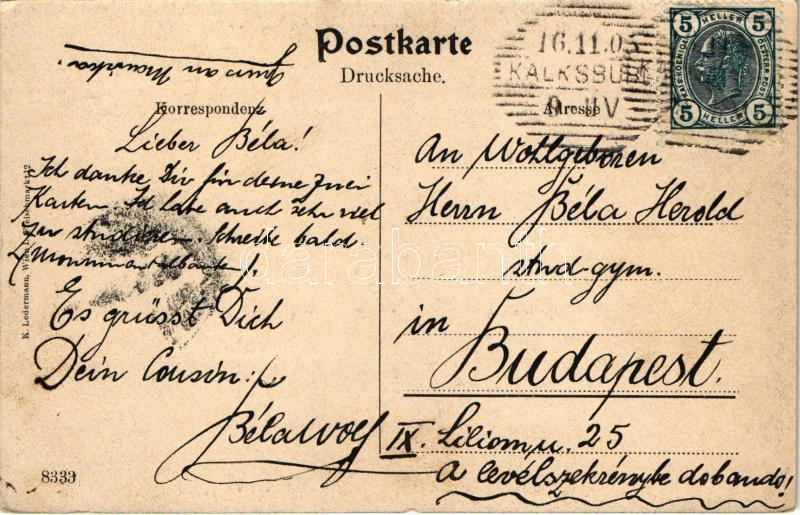 Postkarte
Drucksache.
Korrespondenz
Adresse
16.11.0
KALKSBURG
9 IV
5 HELLER 5
5 HELLER 5
Lieber Béla!
Ich danke Dir für deine zwei
Karten. Ich habe auch sehr viel
zu studieren. Schreibe bald.
Es grüsst Dich
Dein Cousin:
Béla Wolf
An Wohlgeboren
Herrn Béla Herold
stud. gym.
in
Budapest.
IX. Liliom u. 25
A levélszekrénybe dobandó!
K. Ledermann, Wien I. Fleischmarkt 12
8333
darabanth